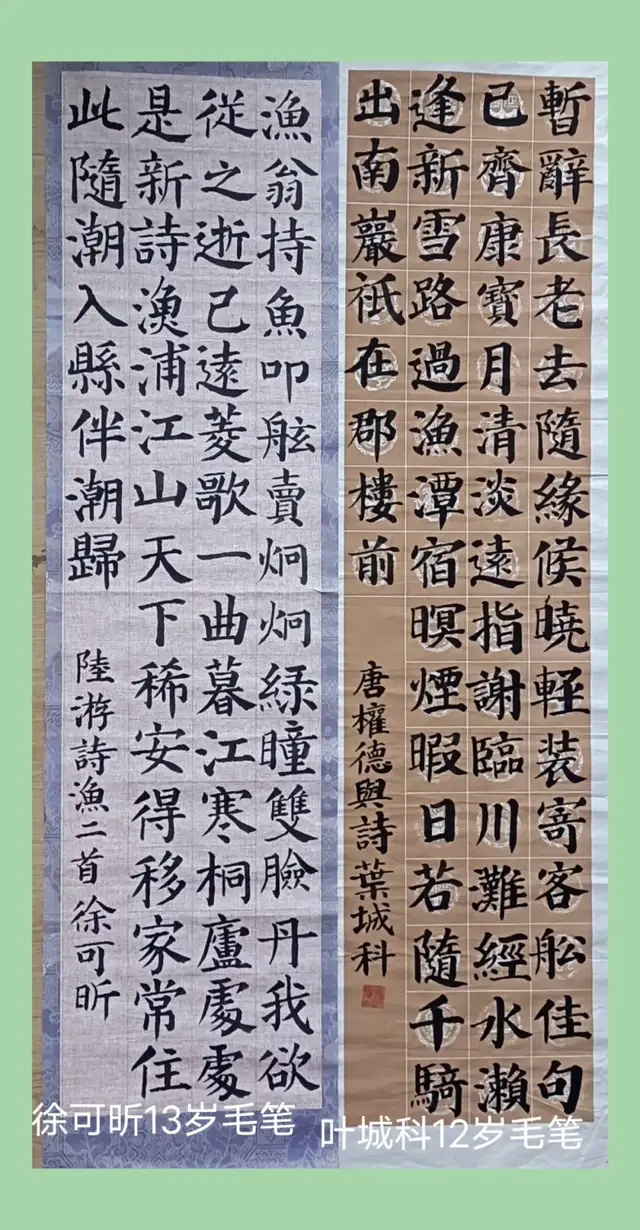 暫辭長老去隨緣候曉輕装寄客舩佳句
已齊康寶月清淡遠指謝臨川灘經水瀨
逢新雪路過漁潭宿暝煙暇日若隨千騎
出南巖祇在郡樓前
唐權德輿詩葉城科
漁翁持魚叩舷賣炯炯緑瞳雙臉丹我欲
從之逝已遠菱歌一曲暮江寒桐廬處處
是新詩漁浦江山天下稀安得移家常住
此隨潮入縣伴潮歸
陸游詩漁二首徐可昕
徐可昕13岁毛笔
叶城科12岁毛笔